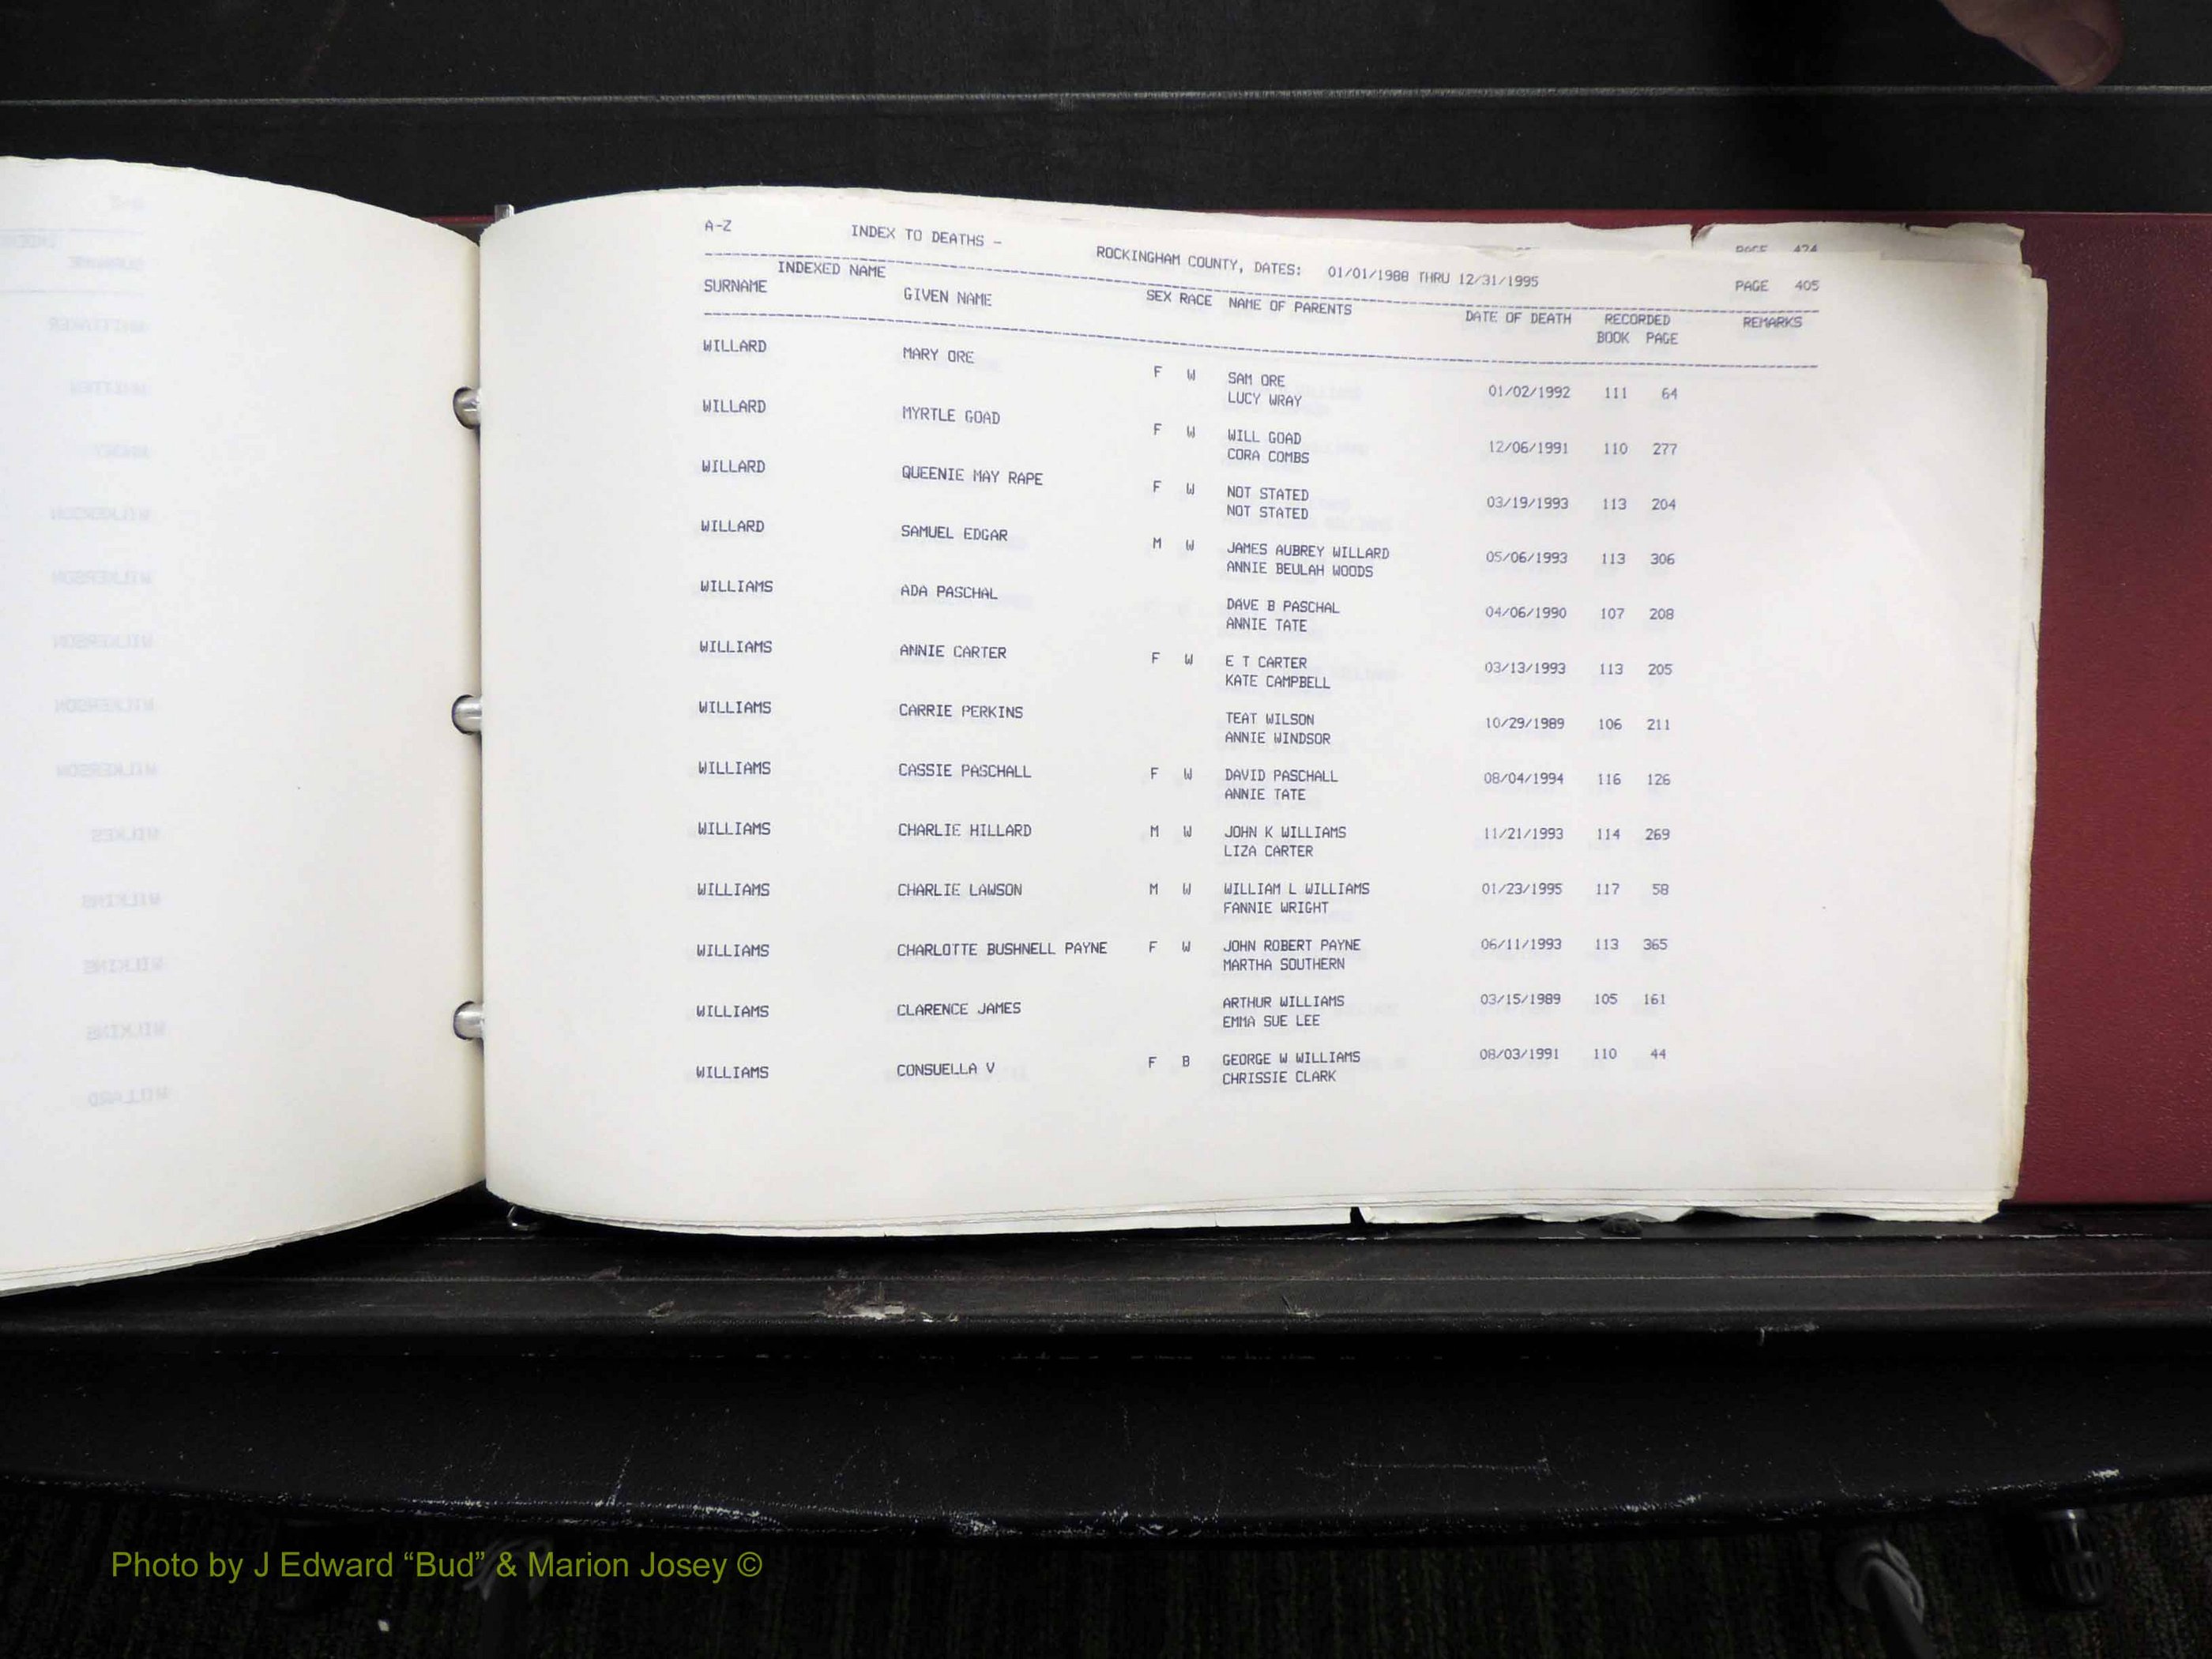 A-Z INDEX TO DEATHS - ROCKINGHAM COUNTY, DATES: 01/01/1988 THRU 12/31/1995
PAGE 424
PAGE 405
INDEXED NAME
SURNAME GIVEN NAME SEX RACE NAME OF PARENTS DATE OF DEATH RECORDED REMARKS
BOOK PAGE
WILLARD MARY ORE F W SAM ORE 01/02/1992 111 64
LUCY WRAY
WILLARD MYRTLE GOAD F W WILL GOAD 12/06/1991 110 277
CORA COMBS
WILLARD QUEENIE MAY RAPE F W NOT STATED 03/19/1993 113 204
NOT STATED
WILLARD SAMUEL EDGAR M W JAMES AUBREY WILLARD 05/06/1993 113 306
ANNIE BEULAH WOODS
WILLIAMS ADA PASCHAL DAVE B PASCHAL 04/06/1990 107 208
ANNIE TATE
WILLIAMS ANNIE CARTER F W E T CARTER 03/13/1993 113 205
KATE CAMPBELL
WILLIAMS CARRIE PERKINS TEAT WILSON 10/29/1989 106 211
ANNIE WINDSOR
WILLIAMS CASSIE PASCHALL F W DAVID PASCHALL 08/04/1994 116 126
ANNIE TATE
WILLIAMS CHARLIE HILLARD M W JOHN K WILLIAMS 11/21/1993 114 269
LIZA CARTER
WILLIAMS CHARLIE LAWSON M W WILLIAM L WILLIAMS 01/23/1995 117 58
FANNIE WRIGHT
WILLIAMS CHARLOTTE BUSHNELL PAYNE F W JOHN ROBERT PAYNE 06/11/1993 113 365
MARTHA SOUTHERN
WILLIAMS CLARENCE JAMES ARTHUR WILLIAMS 03/15/1989 105 161
EMMA SUE LEE
WILLIAMS CONSUELLA V F B GEORGE W WILLIAMS 08/03/1991 110 44
CHRISSIE CLARK
Photo by J Edward “Bud” & Marion Josey ©